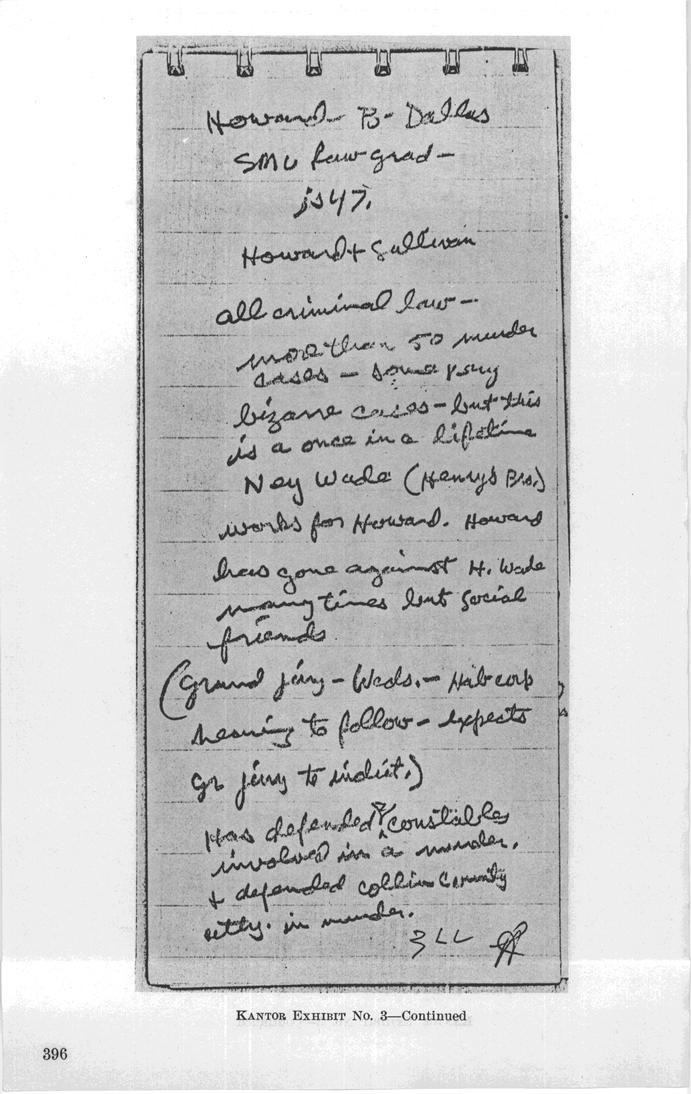 Howard - B- Dallas
SMU Law grad -
is 47.
Howard + Sullivan
all criminal law -
more than 50 murder
cases - some very
bizarre cases - but this
is a once in a lifetime
Ney Wade (Henrys Bro.)
works for Howard. Howard
has gone against H. Wade
many times but social
friends
(Grand jury - Weds. - Hab corp
hearing to follow - expects
gr jury to indict.)
Has defended constables
involved in a murder.
+ defended Collin County
atty. in murder.
KANTOR EXHIBIT NO. 3—Continued
396